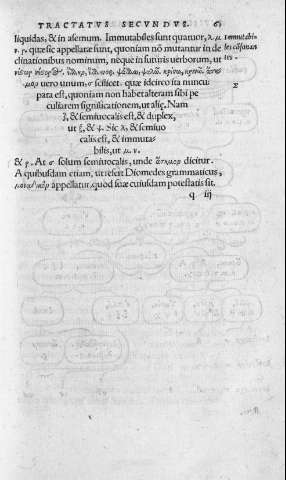 TRACTATVS SECVNDVS. 61
liquidas, & in asemum. Immutabiles sunt quatuor, λ. μ Immutabi-
ν. ρ. quæ sic appellatæ sunt, quoniam nõ mutantur in de les cõsonan
clinationibus nominum, neque in futuris uerborum, ut tes.
μαρ uero unum, σ scilicet. quæ idcirco ita nuncu- Σ
pata est, quoniam non habet alteram sibi pe
culiarem significationem, ut aliæ. Nam
ξ, & semiuocalis est, & duplex,
ut ξ, & ψ. Sic λ, & semiuo
calis est, & immuta-
bilis, ut μ. ν.
& ρ. At σ solum semiuocalis, unde ἄσημον dicitur.
A quibusdam etiam, ut refert Diomedes grammaticus,
appellatur, quod suæ cuiusdam potestatis sit.
q iij